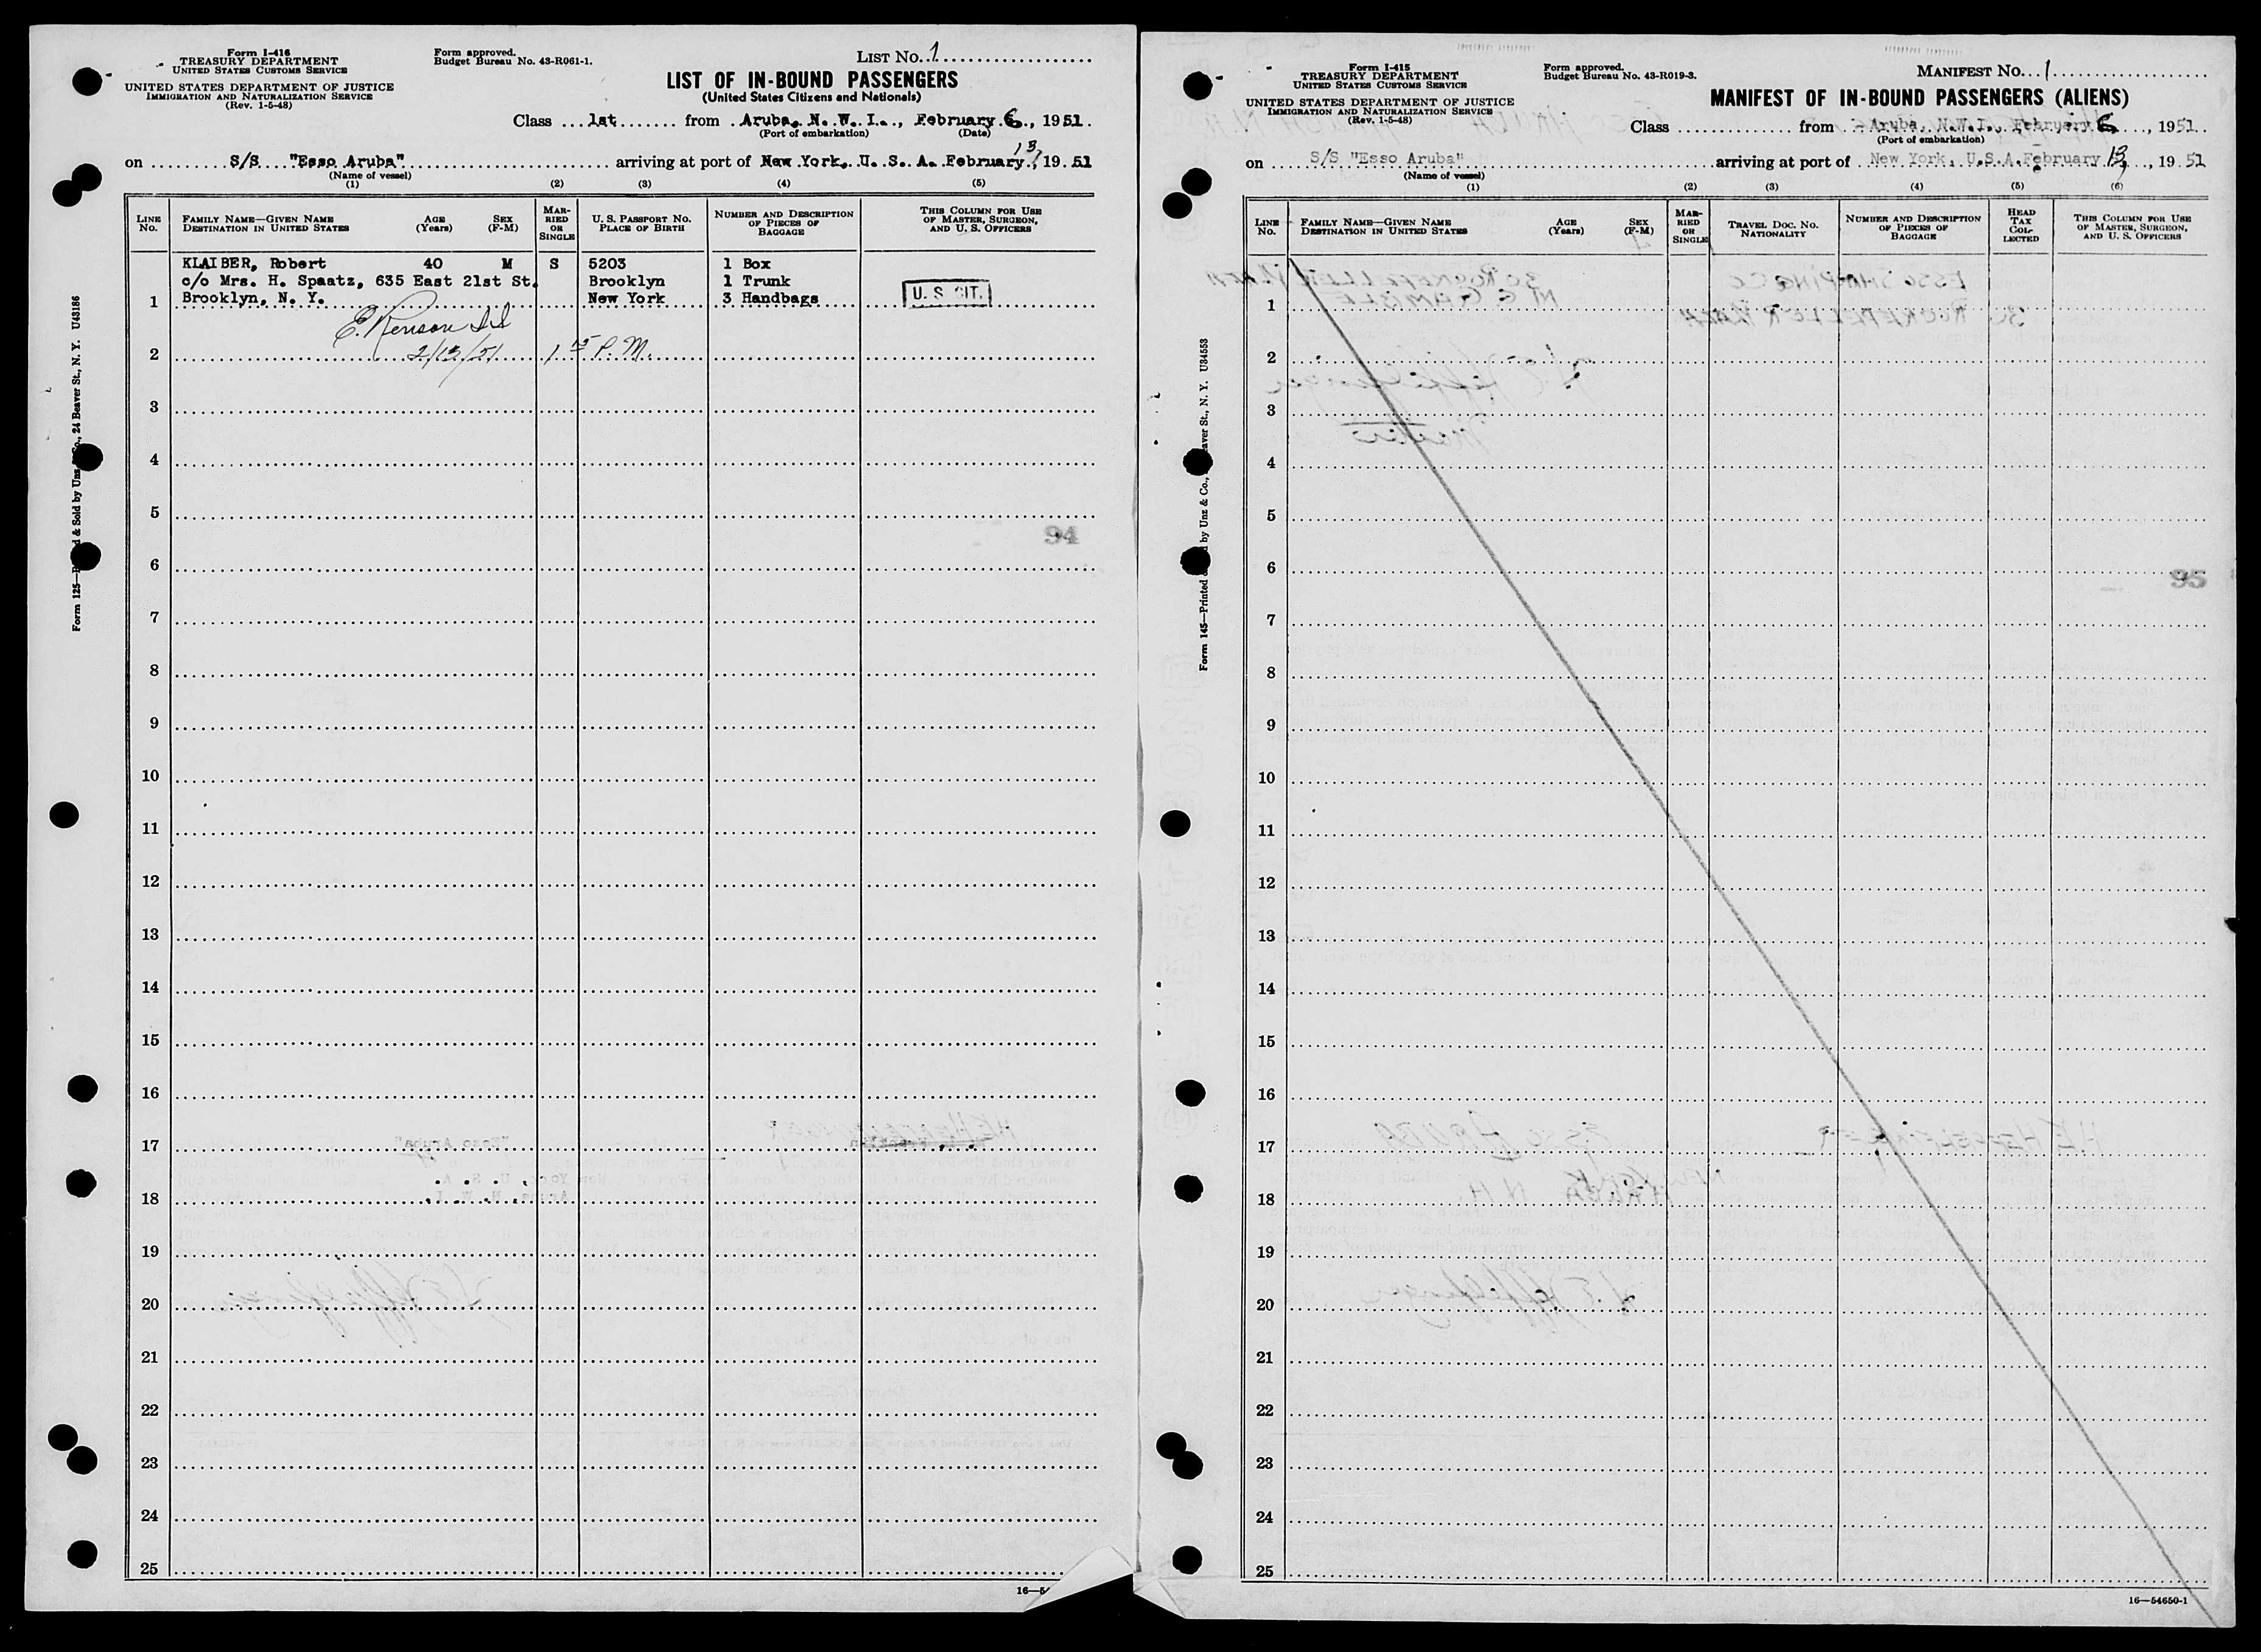 Form I-416
TREASURY DEPARTMENT
UNITED STATES CUSTOMS SERVICE
UNITED STATES DEPARTMENT OF JUSTICE
IMMIGRATION AND NATURALIZATION SERVICE
(Rev. 1-5-48)
Form approved.
Budget Bureau No. 43-R061-1.
LIST No. 1
LIST OF IN-BOUND PASSENGERS
(United States Citizens and Nationals)
Class 1st from Aruba, N. W. I., February 6, 1951
(Port of embarkation) (Date)
on S/S "Esso Aruba" arriving at port of New York, U. S. A. February 13, 1951
(Name of vessel)
(1) (2) (3) (4) (5)
LINE No. FAMILY NAME—GIVEN NAME DESTINATION IN UNITED STATES AGE (Years) SEX (F-M) MARRIED OR SINGLE U. S. PASSPORT NO. PLACE OF BIRTH NUMBER AND DESCRIPTION OF PIECES OF BAGGAGE THIS COLUMN FOR USE OF MASTER, SURGEON, AND U. S. OFFICERS
KLAIBER, Robert 40 M S 5203 1 Box
c/o Mrs. H. Spaatz, 635 East 21st St. Brooklyn 1 Trunk
1 Brooklyn, N. Y. New York 3 Handbags U. S. CIT.
E. Kenson
2 2/13/51 1 15 P. M.
3
4
5
94
6
7
8
9
10
11
12
13
14
15
16
17
18
19
20
21
22
23
24
25
Form 125—24 Beaver St., N. Y. U43186
Form I-415
TREASURY DEPARTMENT
UNITED STATES CUSTOMS SERVICE
UNITED STATES DEPARTMENT OF JUSTICE
IMMIGRATION AND NATURALIZATION SERVICE
(Rev. 1-5-48)
Form approved.
Budget Bureau No. 43-R019-3.
MANIFEST No. 1
MANIFEST OF IN-BOUND PASSENGERS (ALIENS)
Class from Aruba, N.W.I., February 6, 1951
(Port of embarkation)
on S/S "Esso Aruba" arriving at port of New York, U.S.A. February 13, 1951
(Name of vessel)
(1) (2) (3) (4) (5) (6)
LINE No. FAMILY NAME—GIVEN NAME DESTINATION IN UNITED STATES AGE (Years) SEX (F-M) MARRIED OR SINGLE TRAVEL DOC. NO. NATIONALITY NUMBER AND DESCRIPTION OF PIECES OF BAGGAGE HEAD TAX COLLECTED THIS COLUMN FOR USE OF MASTER, SURGEON, AND U. S. OFFICERS
1
2
3
4
5
6
95
7
8
9
10
11
12
13
14
15
16
17
18
19
20
21
22
23
24
25
16—54650-1
Form 145—Printed by Unz & Co., St., N. Y. U34553